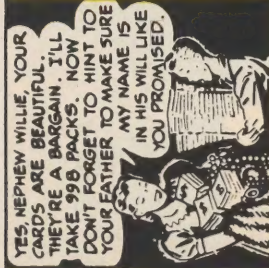 YES, NEPHEW WILLIE, YOUR
CARDS ARE BEAUTIFUL.
THEY'RE A BARGAIN. I'LL
TAKE 998 PACKS. NOW
DON'T FORGET TO HINT TO
YOUR FATHER TO MAKE SURE
MY NAME IS
IN HIS WILL LIKE
YOU PROMISED.